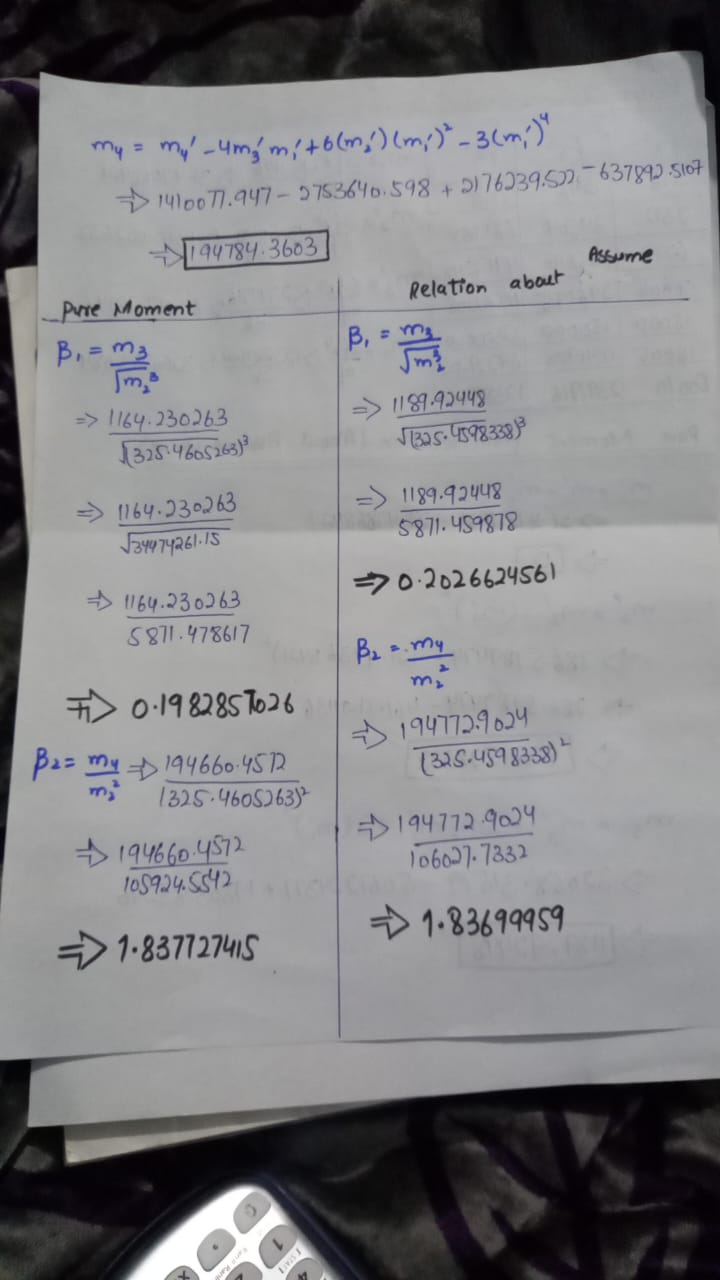 m₄ = m₄' - 4m₃'m₁' + 6(m₂')(m₁')² - 3(m₁')⁴
⇒ 1410077.947 - 2753640.598 + 2176239.522 - 637892.5107
⇒ 194784.3603
Pure Moment
β₁ = m₃/√m₂³
⇒ 1164.230263/√(325.4605263)³
⇒ 1164.230263/√34474261.15
⇒ 1164.230263/5871.478617
⇒ 0.1982857026
β₂ = m₄/m₂² ⇒ 194660.4572/(325.4605263)²
⇒ 194660.4572/105924.5542
⇒ 1.837727415
Relation about Assume
β₁ = m₃/√m₂³
⇒ 1189.92448/√(325.4598338)³
⇒ 1189.92448/5871.459878
⇒ 0.2026624561
β₂ = m₄/m₂²
⇒ 194772.9024/(325.4598338)²
⇒ 194772.9024/106027.7332
⇒ 1.83699959